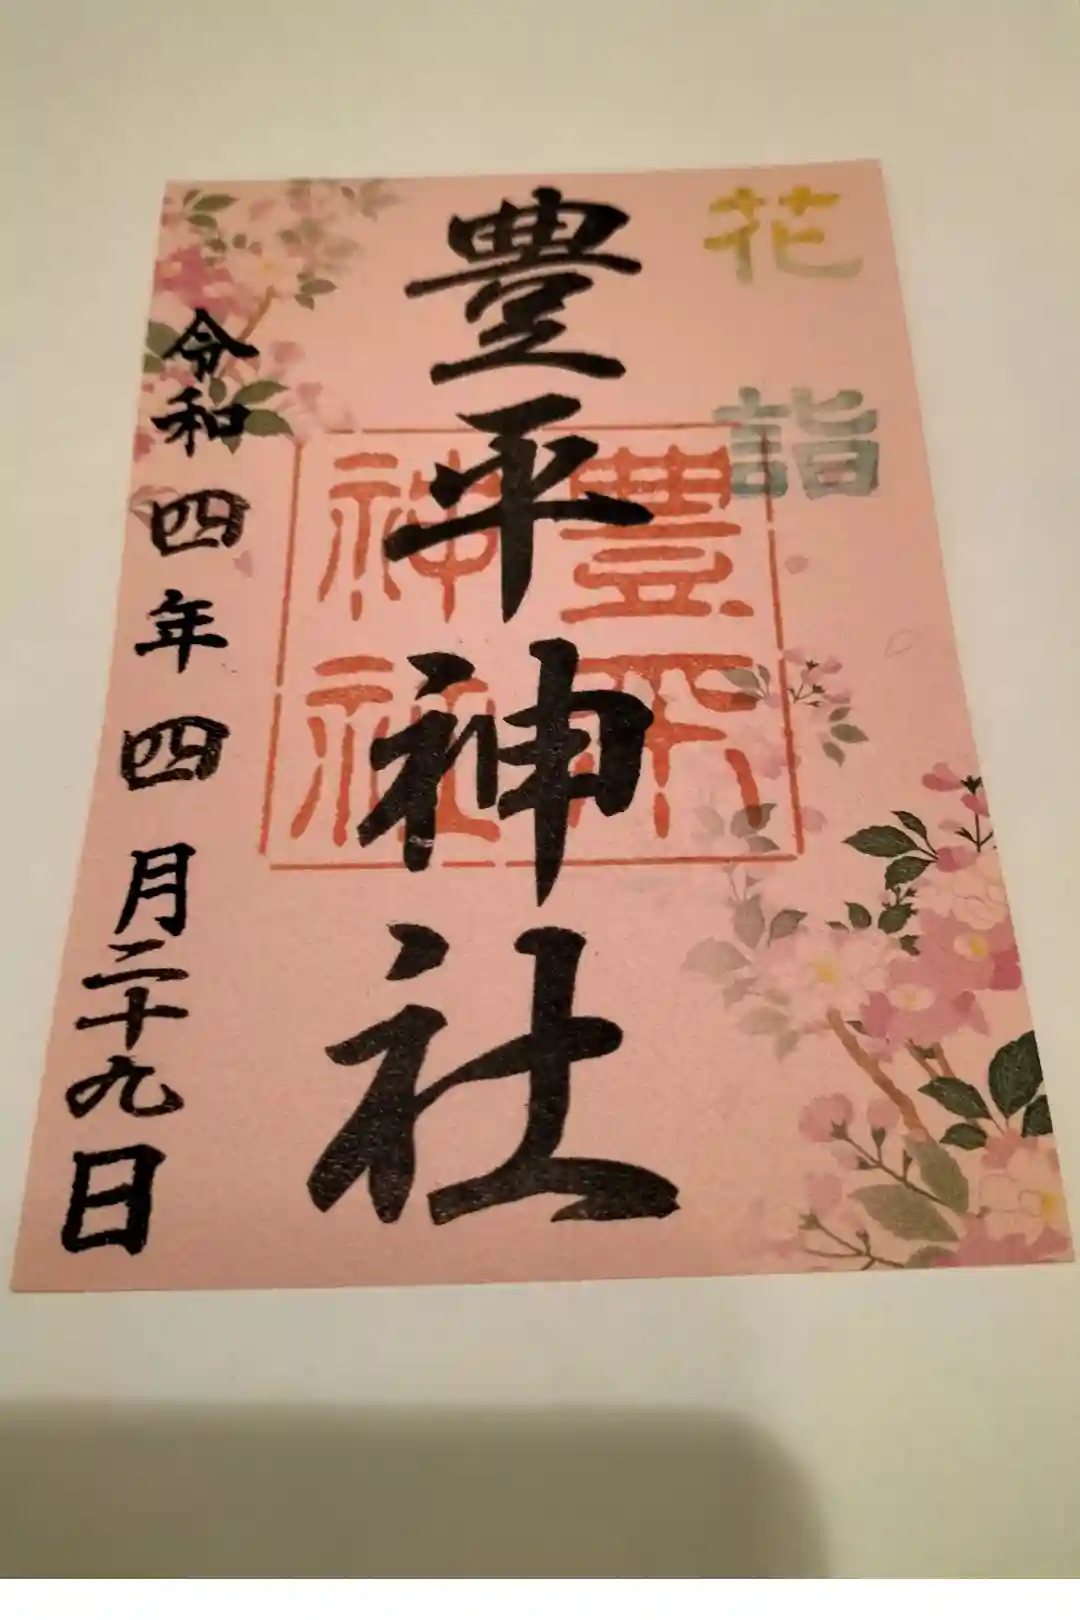 花詣
豊平神社
豊平
神社
令和四年四月二十九日